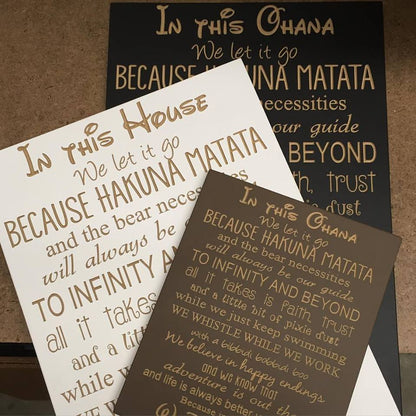 In this Ohana
We let it go
BECAUSE HAKUNA MATATA
necessities
our guide
BEYOND
trust
dust
In this House
We let it go
BECAUSE HAKUNA MATATA
and the bear necessities
will always be
TO INFINITY
all it takes
and a
while we
In this Ohana
We let it go
BECAUSE HAKUNA MATATA
and the bear necessities
will always be our guide
TO INFINITY AND BEYOND
all it takes is faith, trust
and a little bit of pixie dust
while we just keep swimming
WE WHISTLE WHILE WE WORK
with a bibbidi bobbidi boo
We believe in happy endings
and we know that
adventure is out the
and life is always better
Because